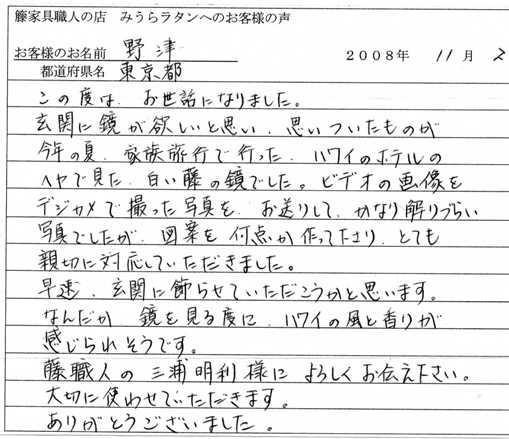 籐家具職人の店 みうらラタンへのお客様の声
お客様のお名前 野津 2008年 11月 2
都道府県名 東京都
この度は、お世話になりました。
玄関に鏡が欲しいと思い、思いついたものが
今年の夏、家族旅行で行った、ハワイのホテルの
ヘヤで見た、白い藤の鏡でした。ビデオの画像を
デジカメで撮った写真を、お送りして、かなり解りづらい
写真でしたが、図案を何点か作って下さり、とても
親切に対応していただきました。
早速、玄関に飾らせていただこうかと思います。
なんだか 鏡を見る度に、ハワイの風と香りが
感じられそうです。
藤職人の三浦明利様によろしくお伝え下さい。
大切に使わせていただきます。
ありがとうございました。